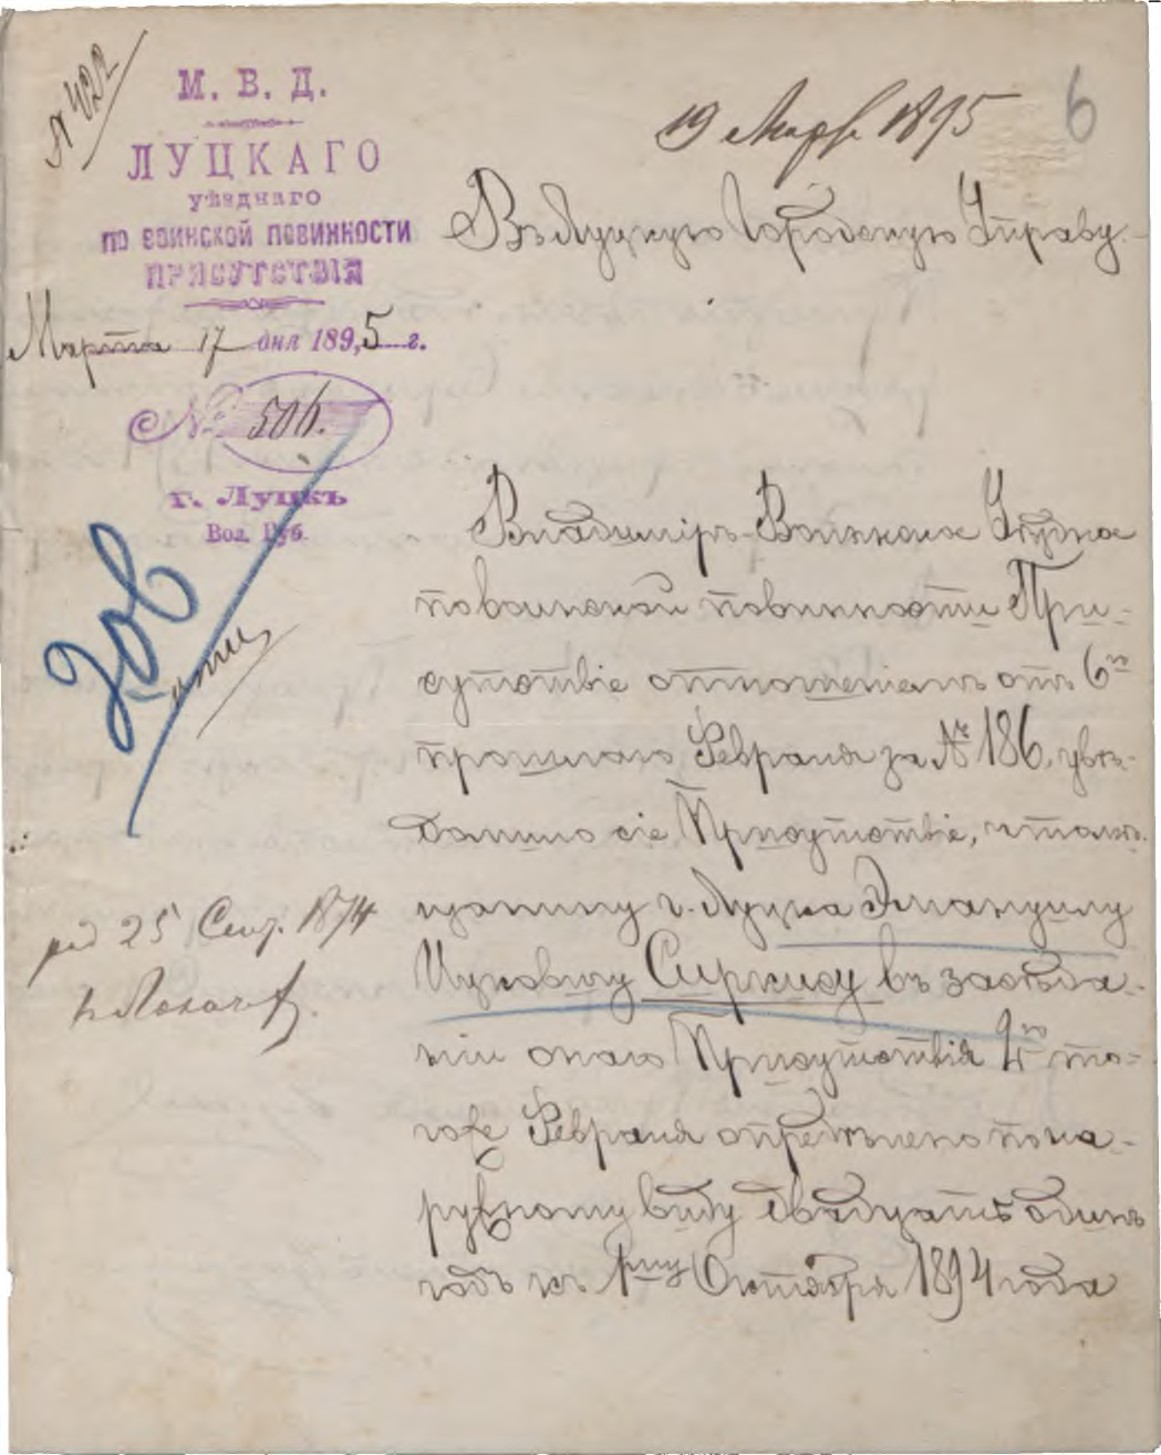 № 422
М. В. Д.
ЛУЦКАГО
уѣзднаго
ПО ВОИНСКОЙ ПОВИННОСТИ
ПРИСУТСТВІЯ
Марта 17 дня 1895 г.
№ 506.
г. Луцкъ
Вол. Губ.
19 Марта 1895
6
Въ Луцкую Городскую Управу.
Владиміръ-Волынское Уѣздное
по воинской повинности При-
сутствіе отношеніемъ отъ 6го
прошлаго Февраля за № 186, увѣ-
домило сіе Присутствіе, что мѣ-
щанину г. Луцка Эмануилу
Ицковичу Сиркису въ засѣда-
ніи онаго Присутствія 4го то-
гоже Февраля опредѣлено по на-
ружному виду двадцать одинъ
годъ къ 1му Октября 1894 года
род 25 Сент. 1874